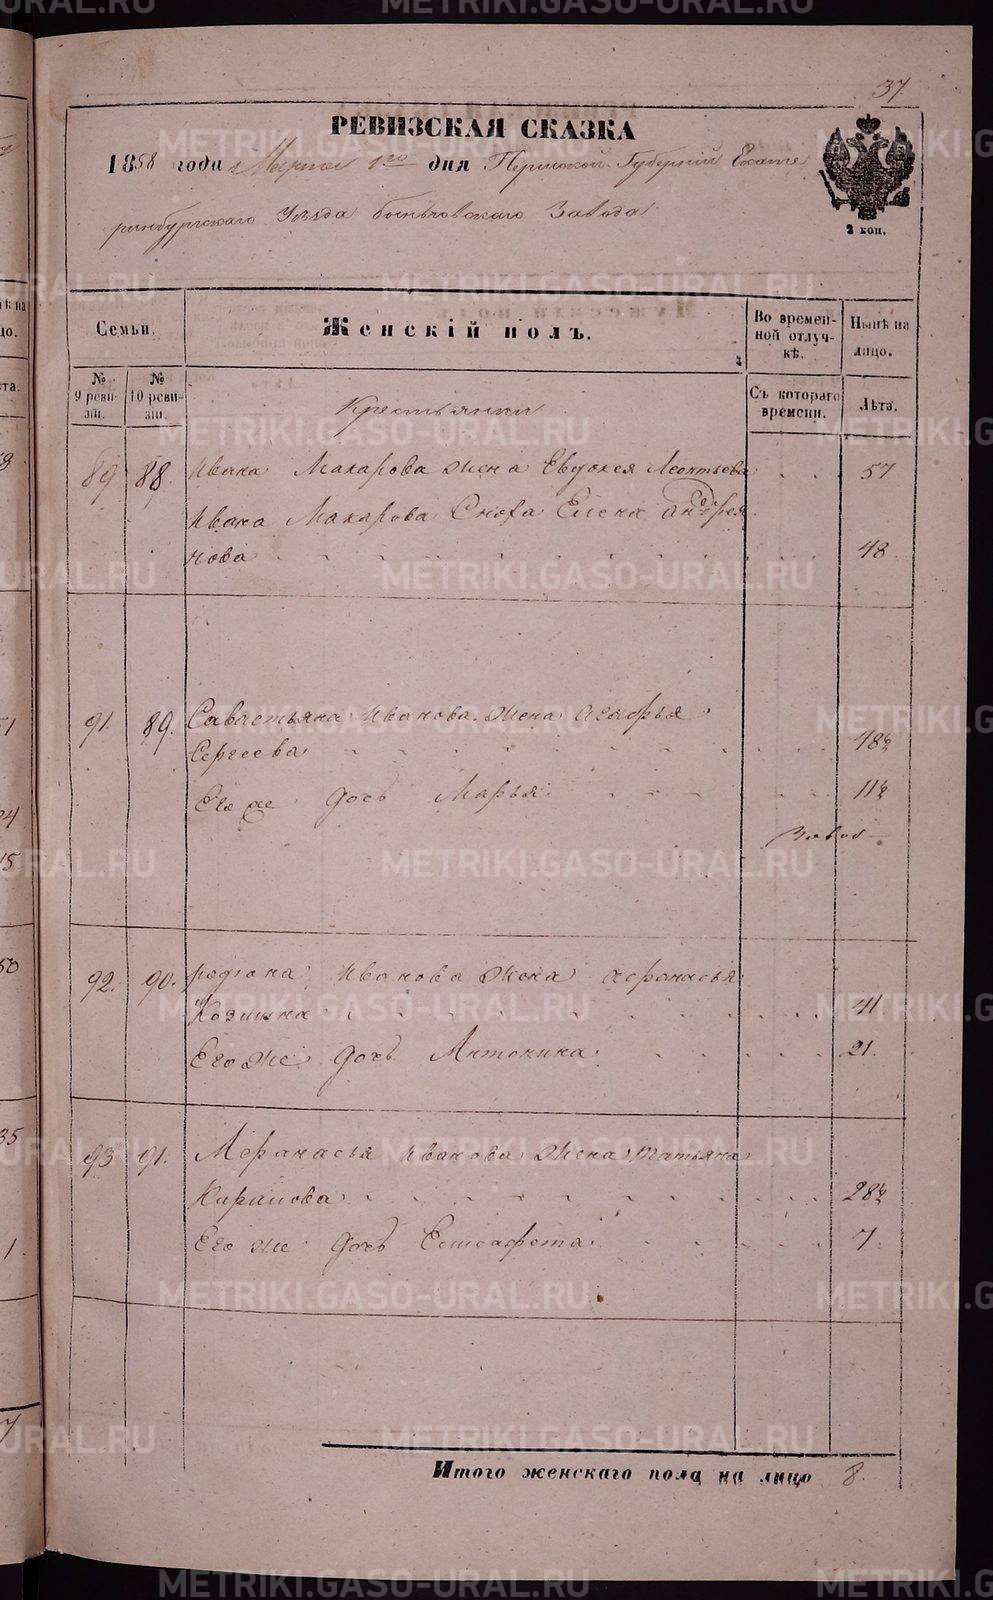 37
РЕВИЗСКАЯ СКАЗКА
1858 года Марта 1го дня Пермской Губерніи Екате
ринбургскаго Уезда бынговскаго Завода
2 коп.
Семьи. Женскій полъ. Во времен-ной отлуч-кѣ. Нынѣ на лицо.
№ 9 реви-зіи. № 10 реви-зіи. Съ котораго времени. Лѣта.
Крестьянки
89 88. Ивана Макарова жена Евдокея Леонтьева 57
Ивана Макарова Сноха Елена андрея
нова 48
91. 89. Саватьяна Иванова жена Агафья
Сергеева 48½
Его же дочь Марья 11½
Завод
92. 90. родиона Иванова жена афонасья
41
Его же дочь Антонина 21.
93 91. Афанасья Иванова жена татьяна
28½
Его же дочь Елисафета 7
Итого женскаго пола на лицо 8.
METRIKI.GASO-URAL.RU